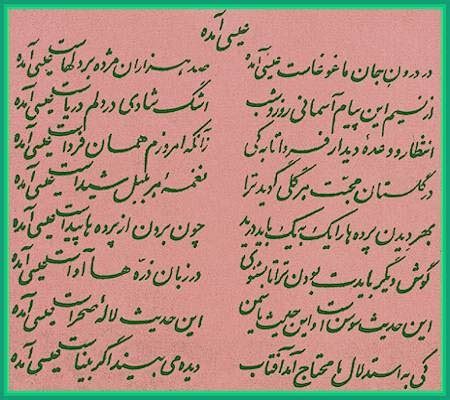 عیسی آمده
در درون جان ما غوغاست عیسی آمده صد هزاران مژده بر دلهاست عیسی آمده
از نسیم این پیام آسمانی روز و شب اشک شادی در دلم دریاست عیسی آمده
انتظار و وعدهٔ دیدار فردا تا به کی زآنکه امروزم همان فرداست عیسی آمده
در گلستان محبت هر گلی گوید ترا نغمهٔ هر بلبل شیداست عیسی آمده
بهر دیدن پرده ها را یک به یک باید درید چون برون از پرده ها پیداست عیسی آمده
گوش دیگر بایدت بودن ترا تا بشنوی در زبان ذره ها آواست عیسی آمده
این حدیث سوسن است و این حدیث یاسمن این حدیث لالهٔ صحراست عیسی آمده
کی به استدلال ها محتاج آمد آفتاب دیده می بیند اگر بیناست عیسی آمده